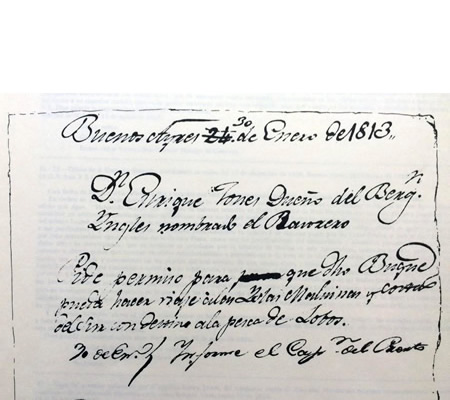 Buenos Ayres 24. 30 de Enero de 1813,,
Dn. Enrique Jones Dueño del Bergn.
Yngles nombrado el Ravorero
Pide permiso para que dho Buque
pueda hacer viaje a las Yslas Malvinas y costas
del Sur con destino a la pesca de Lobos.
30 de Enro. Ynforme el Capn. del Puerto